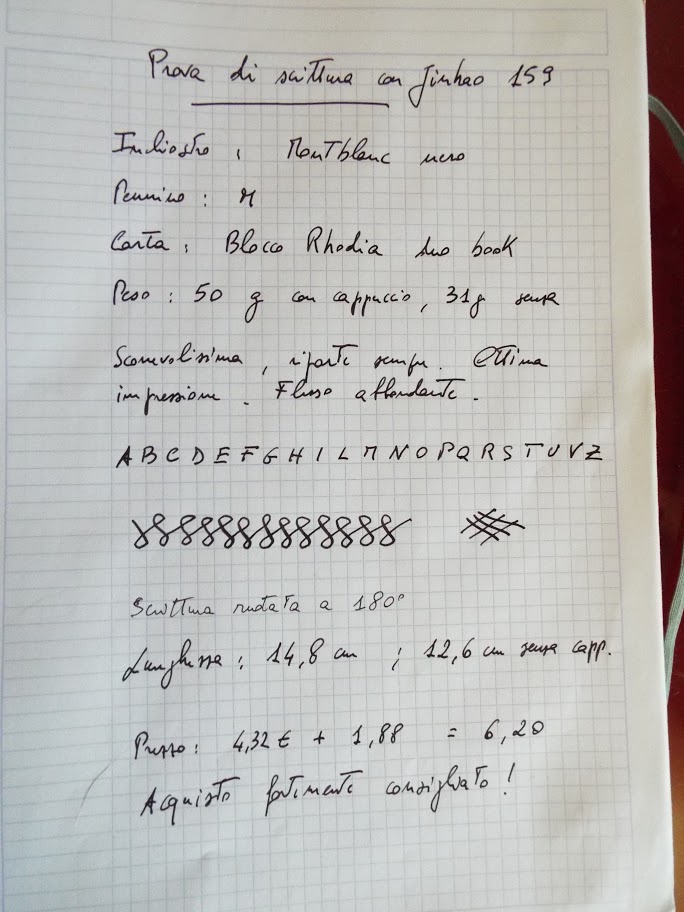 Prova di scrittura con Jinhao 159
Inchiostro : Montblanc nero
Pennino : M
Carta : Blocco Rhodia duo book
Peso : 50 g con cappuccio, 31g senza
Scorrevolissima, riparte sempre. Ottima
impressione. Flusso abbondante.
A B C D E F G H I L M N O P Q R S T U V Z
Scrittura ruotata a 180°
Lunghezza : 14,8 cm ; 12,6 cm senza capp.
Prezzo : 4,32 € + 1,88 = 6,20
Acquisto fortemente consigliato !